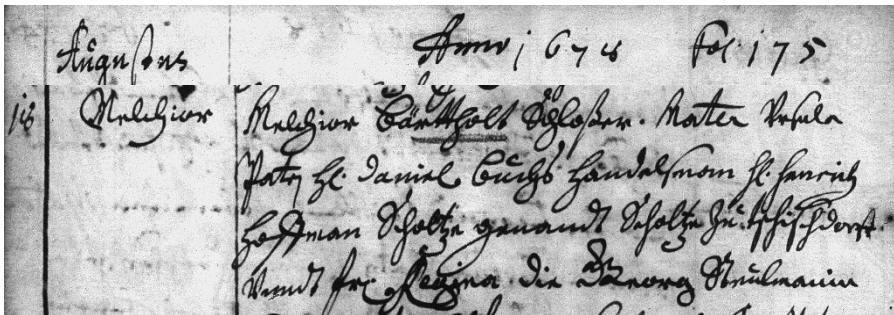 Augustus Anno 1678 Fol. 175
18 Melchior Melchior Bärttholt Schloßer. Mater Ursula
Paten H. Daniel Buchs Handelsman H. Henrich
Hoffman Scholtze genandt Scholtze zu
Vnndt Fr. Regina die Georg